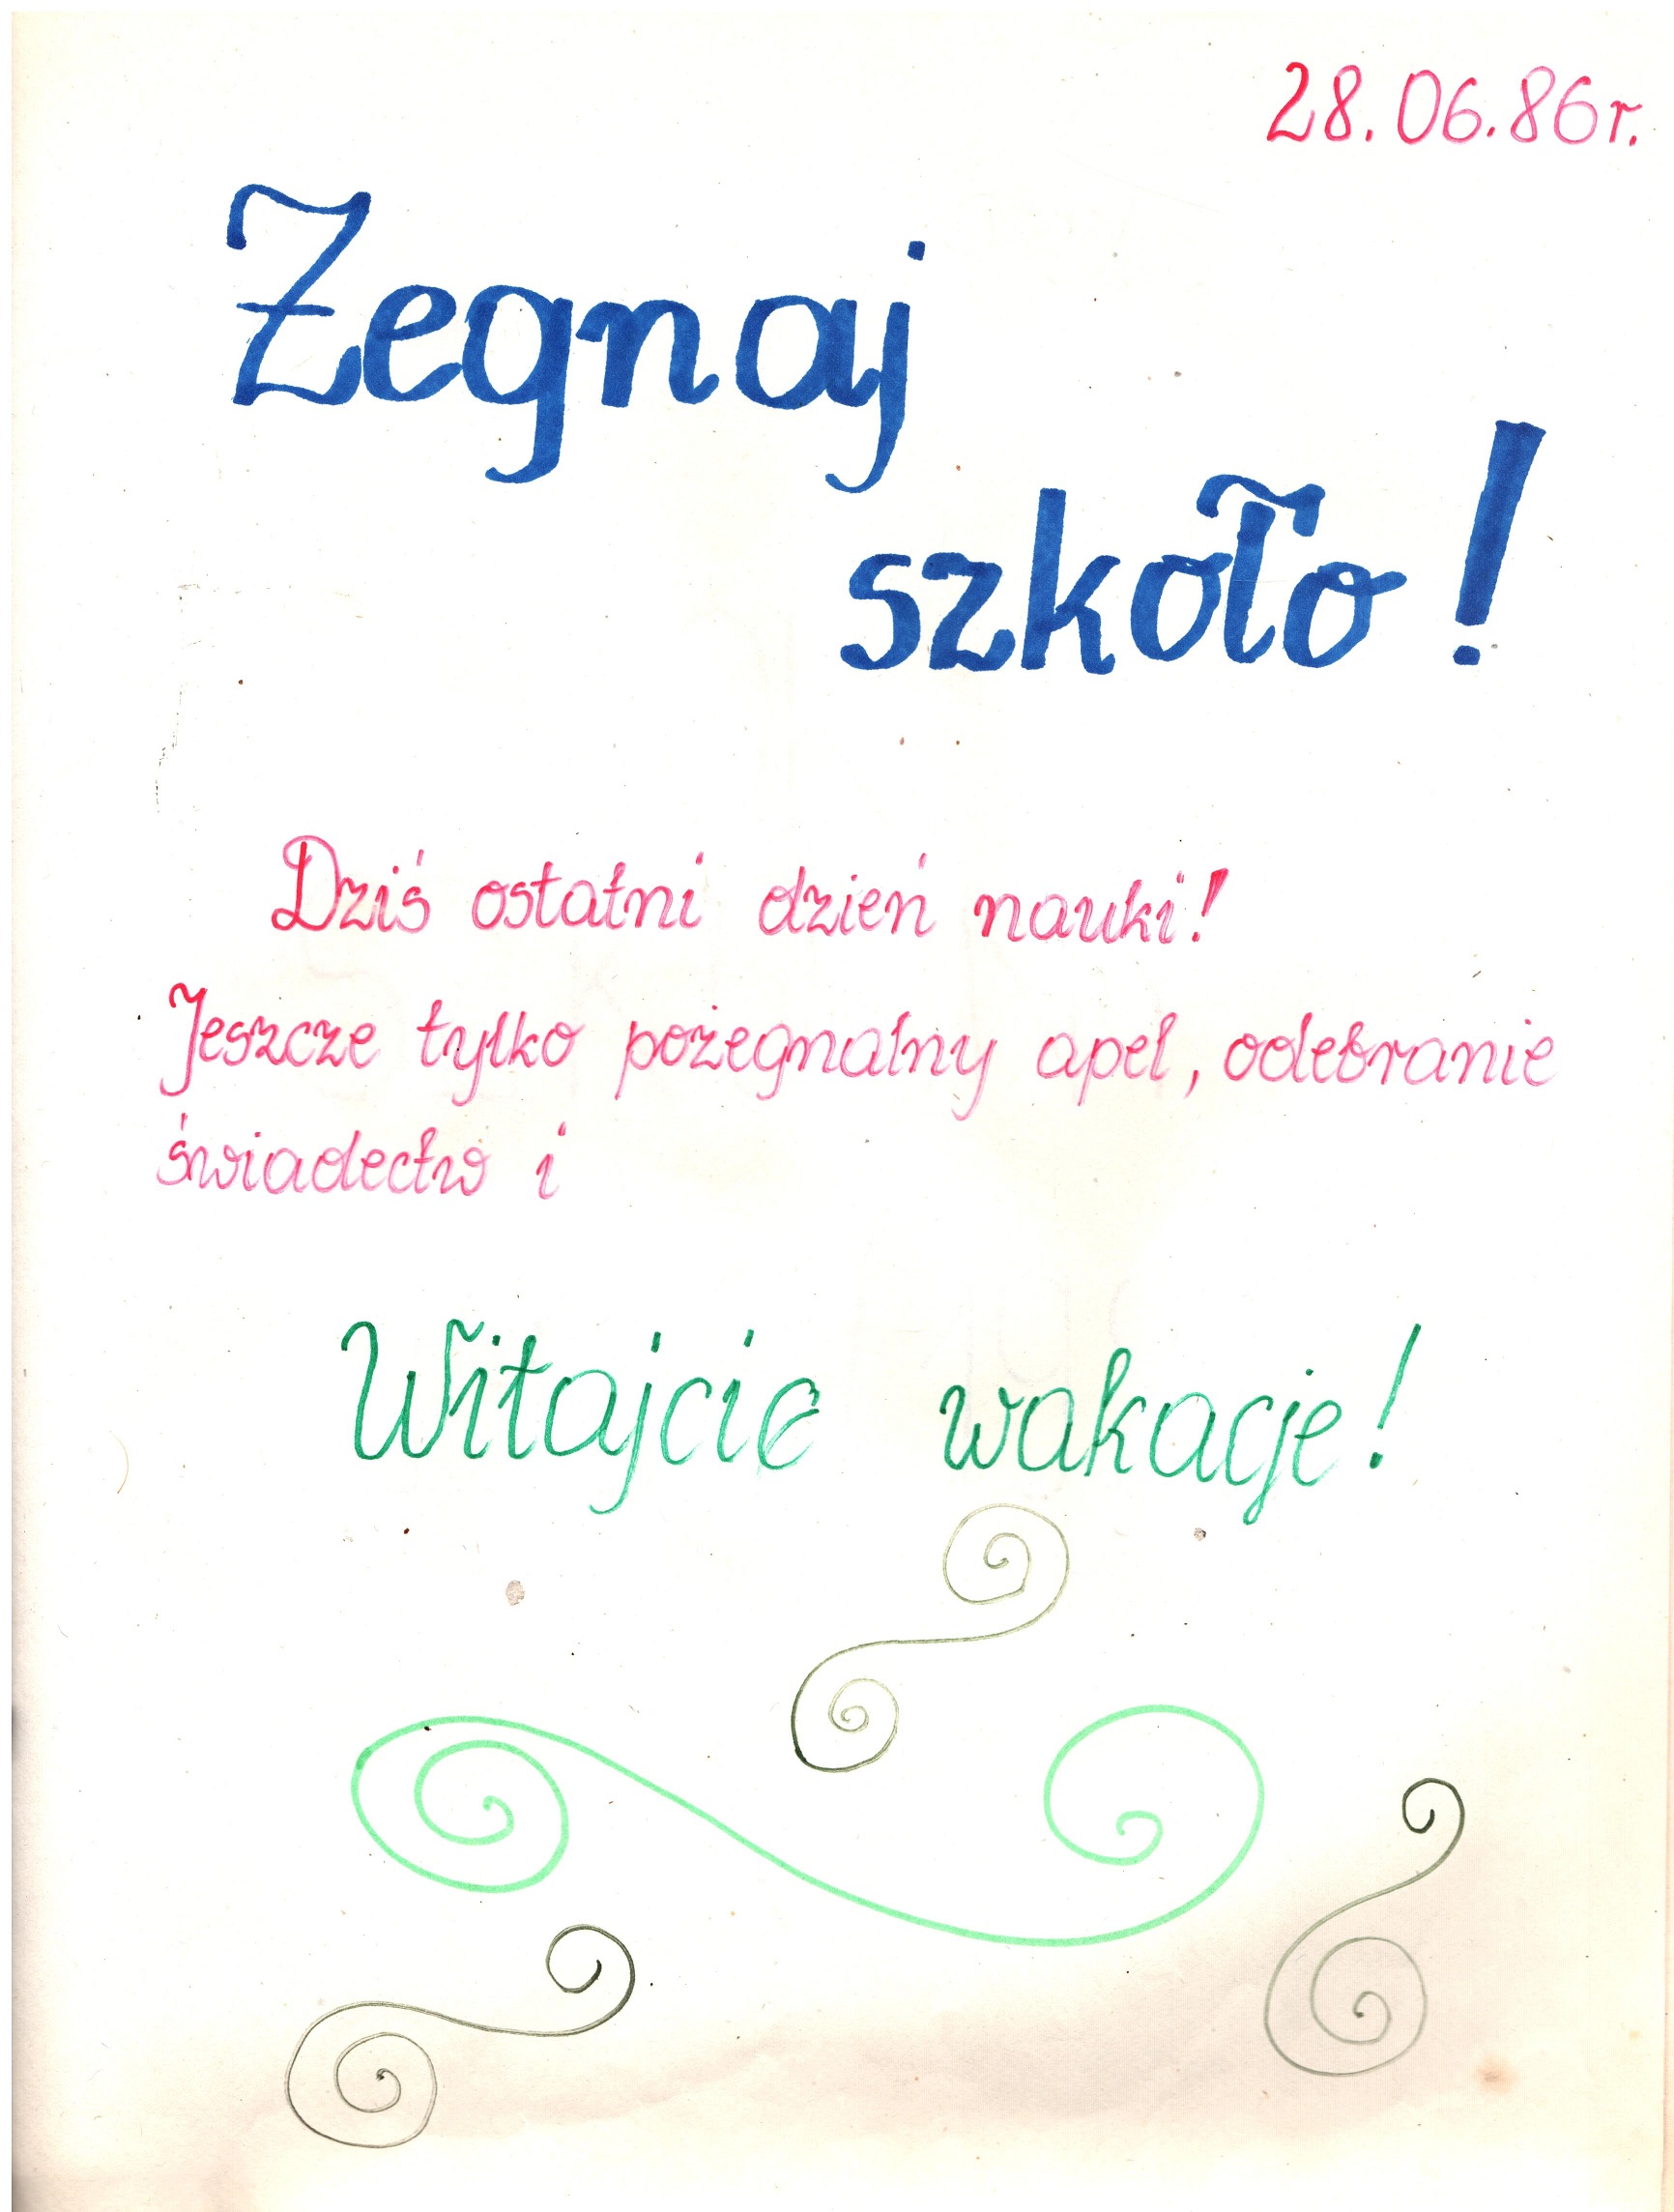 28.06.86r.
Żegnaj
szkoło!
Dziś ostatni dzień nauki!
Jeszcze tylko pożegnalny apel, odebranie
świadectw i
Witajcie wakacje!